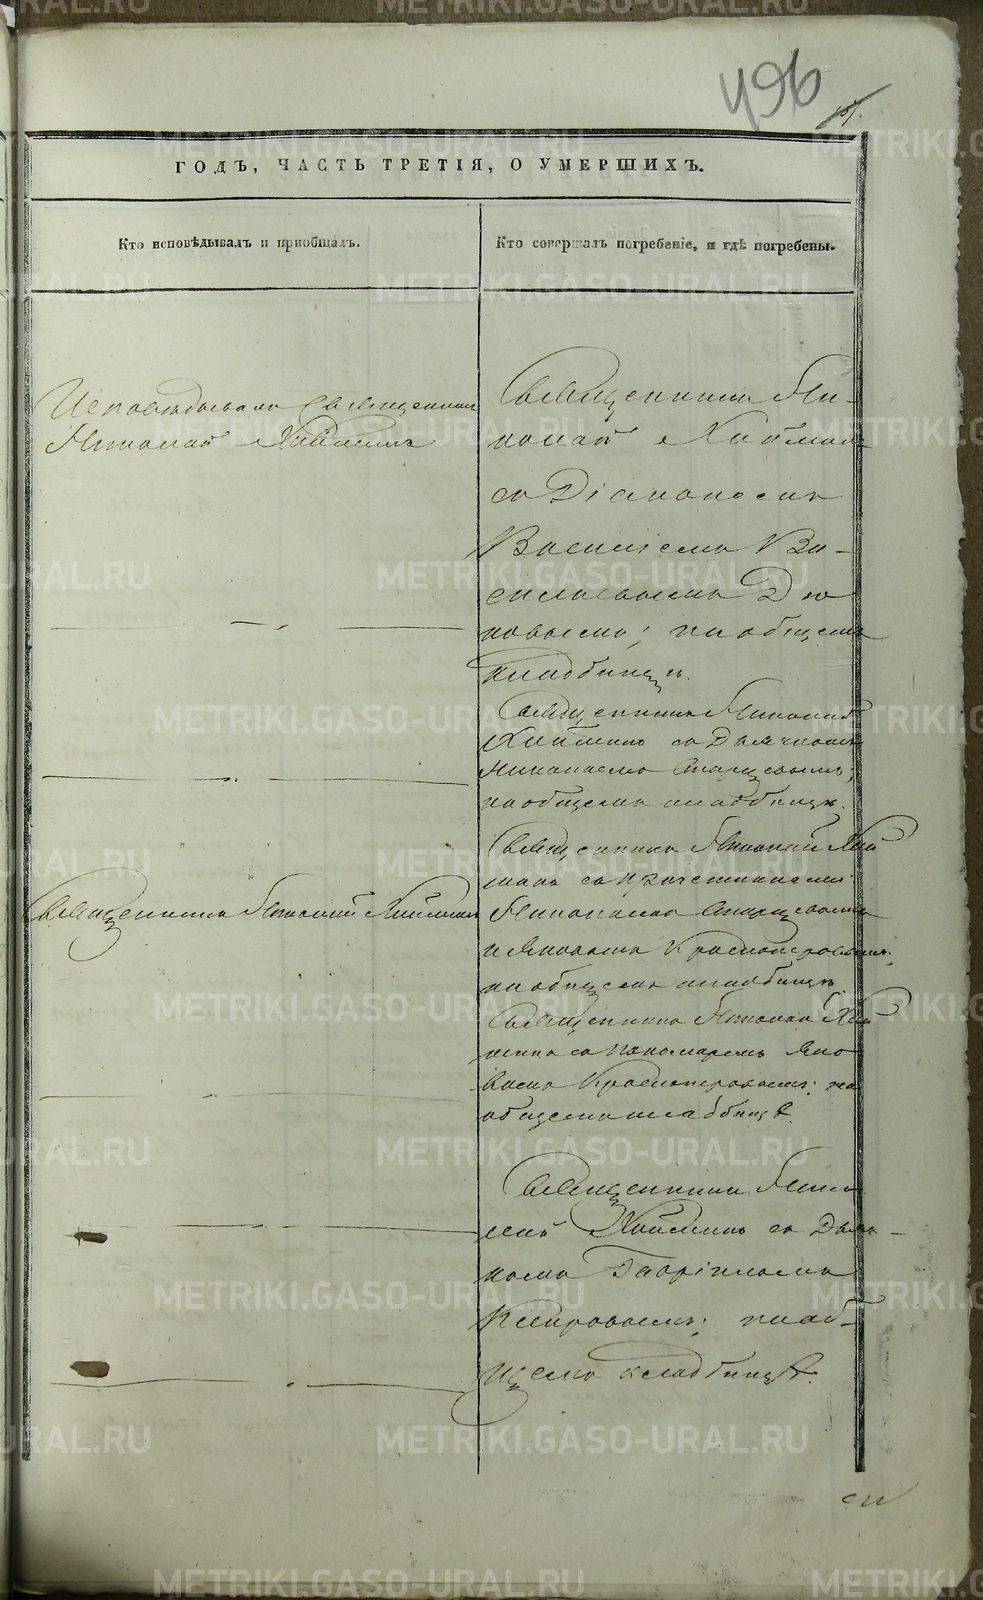 496
ГОДЪ, ЧАСТЬ ТРЕТІЯ, О УМЕРШИХЪ.
Кто исповѣдывалъ и приобщалъ.
Кто совершалъ погребеніе, и гдѣ погребены.
Исповѣдывалъ Священникъ
Николай
Священникъ Ни-
колай
со Діакономъ
Василіемъ Ва-
сильевымъ
на общемъ
кладбищѣ.
Священникъ Николай
со Дьячкомъ
Николаемъ Старцевымъ;
на общемъ кладбищѣ.
Священникъ Николай
съ причетниками
Священникъ Николай
Николаемъ Старцевымъ
и Яковомъ Красноперовымъ;
на общемъ кладбищѣ
Священникъ Николай
съ пономаремъ Яко-
вомъ Красноперовымъ; на
общемъ кладбищѣ.
Священникъ Нико-
лай со Дьяч-
комъ Гавріиломъ
на об-
щемъ кладбищѣ.
METRIKI.GASO-URAL.RU